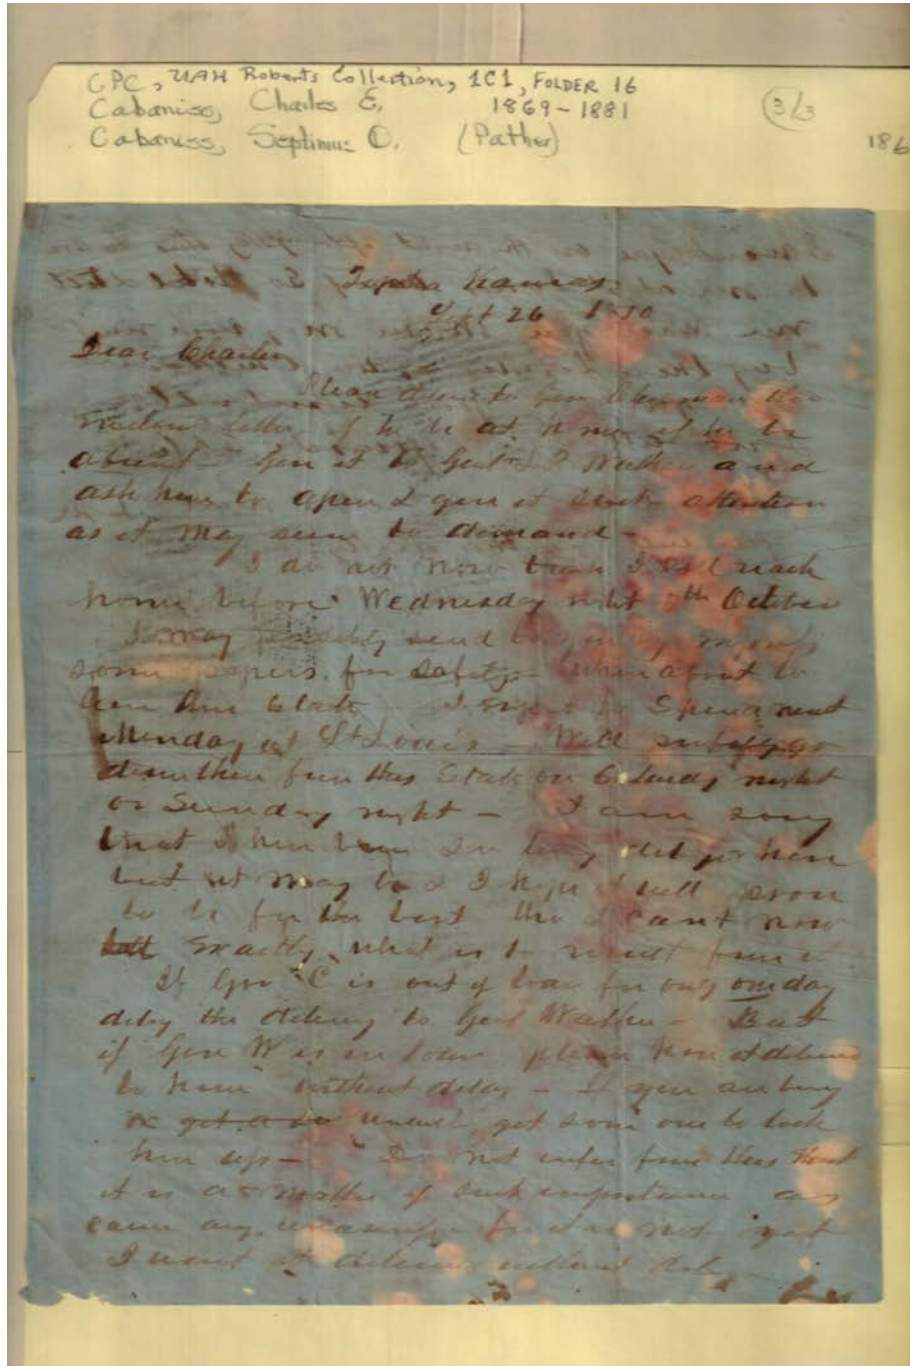 CPC, UAH Roberts Collection, 1C1, FOLDER 16
Cabaniss, Charles E. 1869-1881
3/3
Cabaniss, Septimus D. (Father)
186
Topeka Kansas
Sept 26 1870
Dear Charley
Please deliver to Gov the
letter if he be at home if he be
absent - give it to Genl L P Walker and
ask him to open & give it such attention
as it may seem to demand -
I do not now think I will reach
home before Wednesday night 5th October
I may possibly send to you by
some papers for safety - when about to
leave this State - I expect to Spend next
Monday at St Louis - Will
from this State on Saturday night
or Sunday night - I am sorry
that I have been so long here
but it may be & I hope it will prove
to be for the best tho I cant now
tell exactly what is to result from it
If Gov C is out of town for only one day
delay the delivery to Genl Walker - But
if Gen W is in town please have it delivered
to him without delay - If you are busy
or get a so unwell get some one to look
him up - Do not infer from this that
it is a matter of such importance as
cause any uneasiness for it is not yet
I want it delivered without